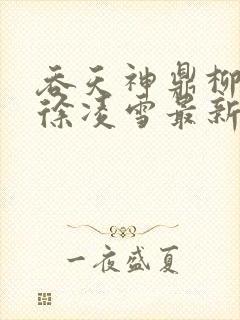 吞天神鼎柳
徐凌雪最新
一夜盛夏